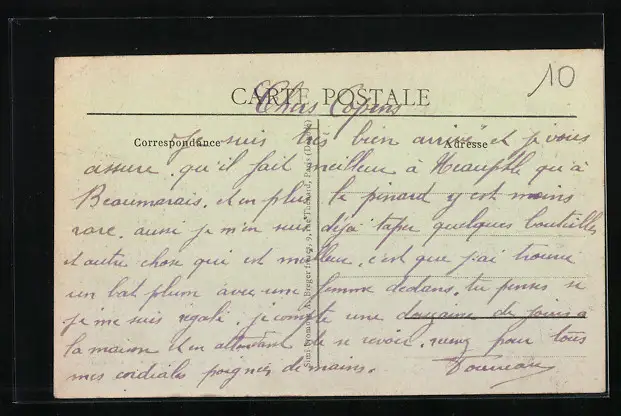 10
CARTE POSTALE
Chers Copins
Correspondance
Adresse
Je suis très bien arrivé et je vous
assure qu'il fait meilleur à Neauphle qu'à
Beaumarais, et en plus le pinard y est moins
rare, aussi je m'en suis déjà tapé quelques bouteilles
et autre chose qui est meilleur, c'est que j'ai trouvé
un bat plum avec une femme dedans, tu penses si
je me suis régalé. je compte une douzaine de jours à
la maison et en attendant de se revoir, recevez pour tous
mes cordiales poignées de mains.
A. Breger frères, 9, rue Thénard, Paris